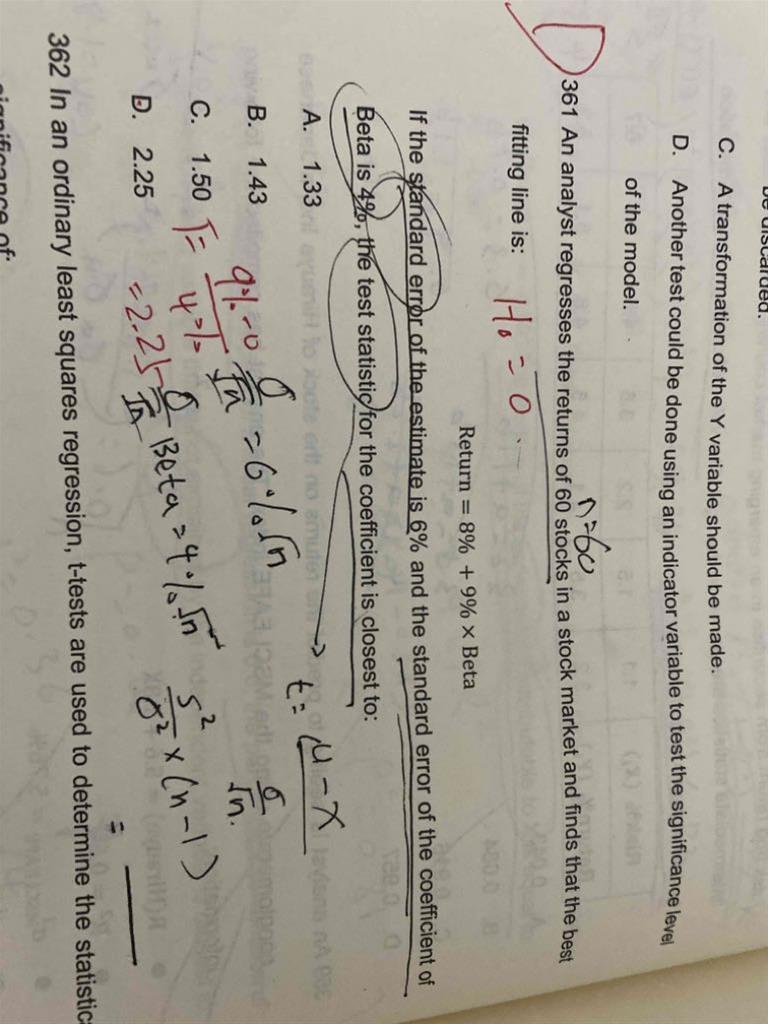 be discarded.
C. A transformation of the Y variable should be made.
D. Another test could be done using an indicator variable to test the significance level
of the model.
D
n=60
361 An analyst regresses the returns of 60 stocks in a stock market and finds that the best
fitting line is: H₀ = 0
Return = 8% + 9% × Beta
If the standard error of the estimate is 6% and the standard error of the coefficient of
Beta is 4%, the test statistic for the coefficient is closest to:
A. 1.33
t = μ - x
σ/√n.
B. 1.43
σ/√n = 6%√n
C. 1.50
T = 9%-0 / 4%
σ/√n Beta = 4%√n
s²/σ² × (n-1)
D. 2.25
= 2.25
=
362 In an ordinary least squares regression, t-tests are used to determine the statistic
significance of: